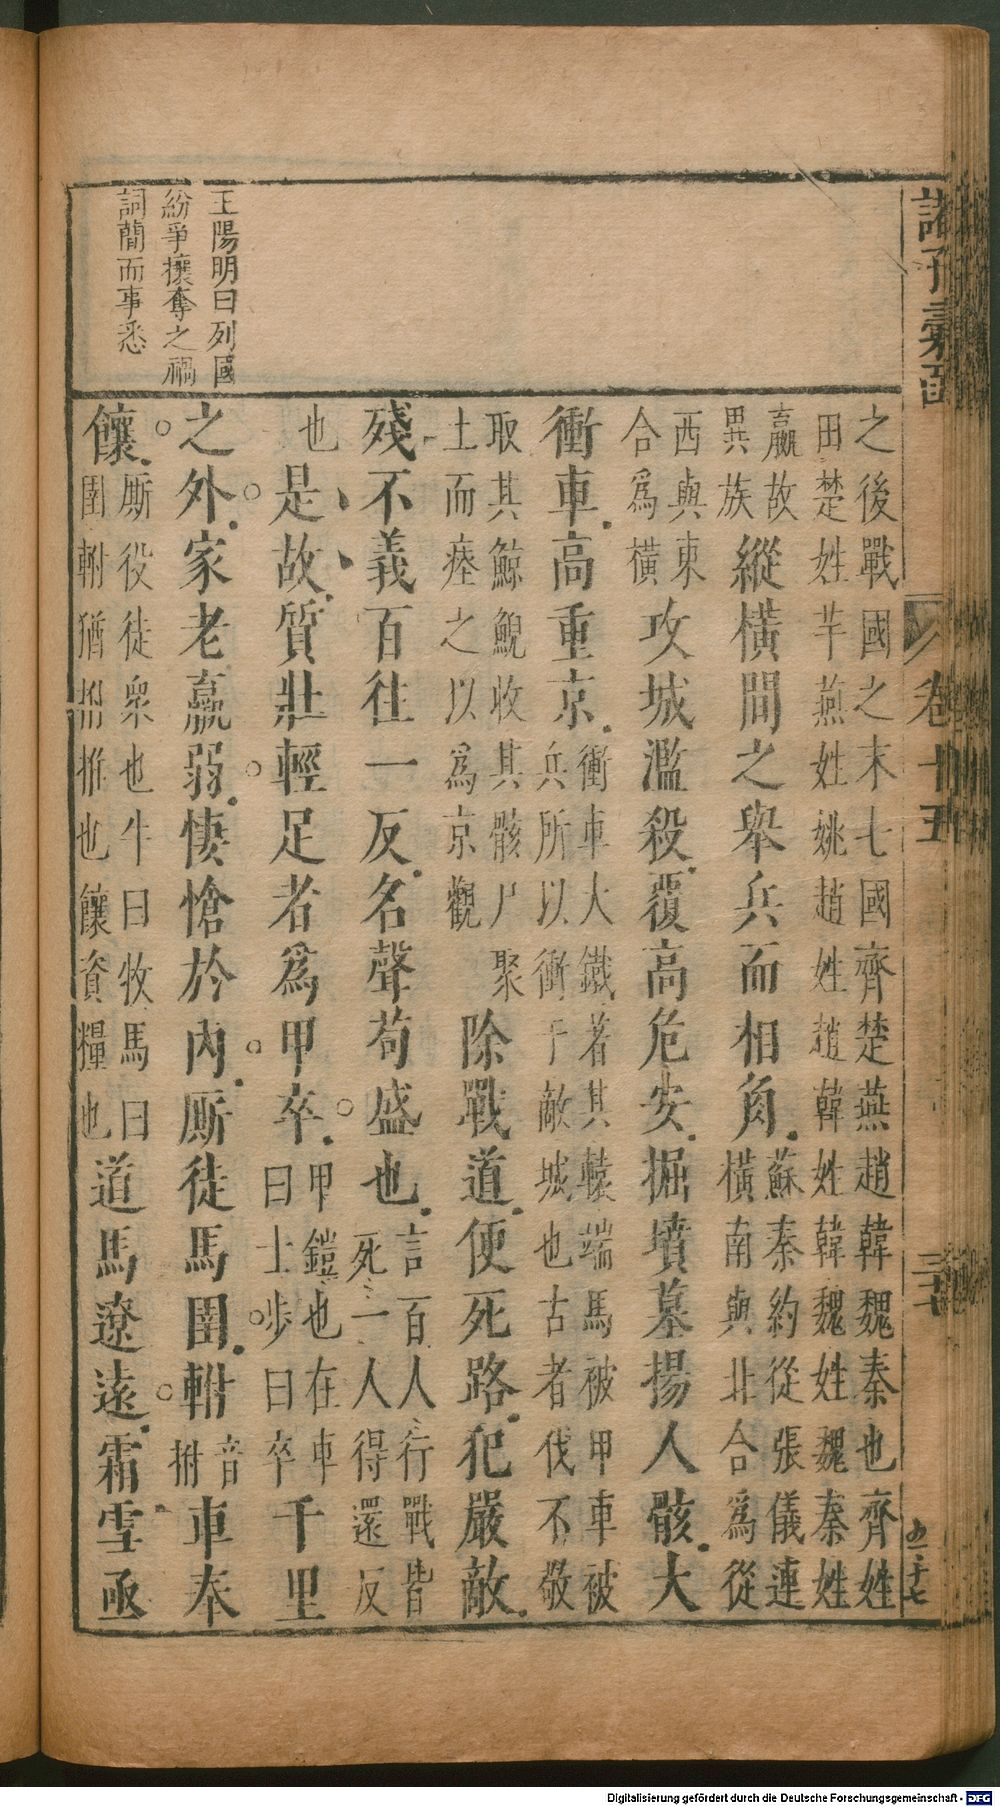 諸子彙函
卷十五
三十七
王陽明曰列國
紛爭攘奪之禍
詞簡而事悉
之後戰國之末七國齊楚燕趙韓魏秦也齊姓
田楚姓芊燕姓姚趙姓趙韓姓韓魏姓魏秦姓
嬴故
異族
縱橫間之舉兵而相角
蘇秦約從張儀連
橫南與北合為從
西與東
合為橫
攻城濫殺覆高危安掘墳墓揚人骸大
衝車高重京
衝車大鐵著其轅端馬被甲車被
兵所以衝于敵城也古者伐不敬
取其鯨鯢收其骸尸聚
土而瘞之以為京觀
除戰道便死路犯嚴敵
殘不義百往一反名聲苟盛也
言百人行戰皆
死一人得還反
也
是故質壯輕足者為甲卒
甲鎧也在車
曰士步曰卒
千里
之外家老羸弱悽愴於內厮徒馬圉軵
音
拊
車奉
饟
厮役徒眾也牛曰牧馬曰
圉軵猶推也饟資糧也
道馬遼遠霜雪亟
Digitalisierung gefördert durch die Deutsche Forschungsgemeinschaft - DFG